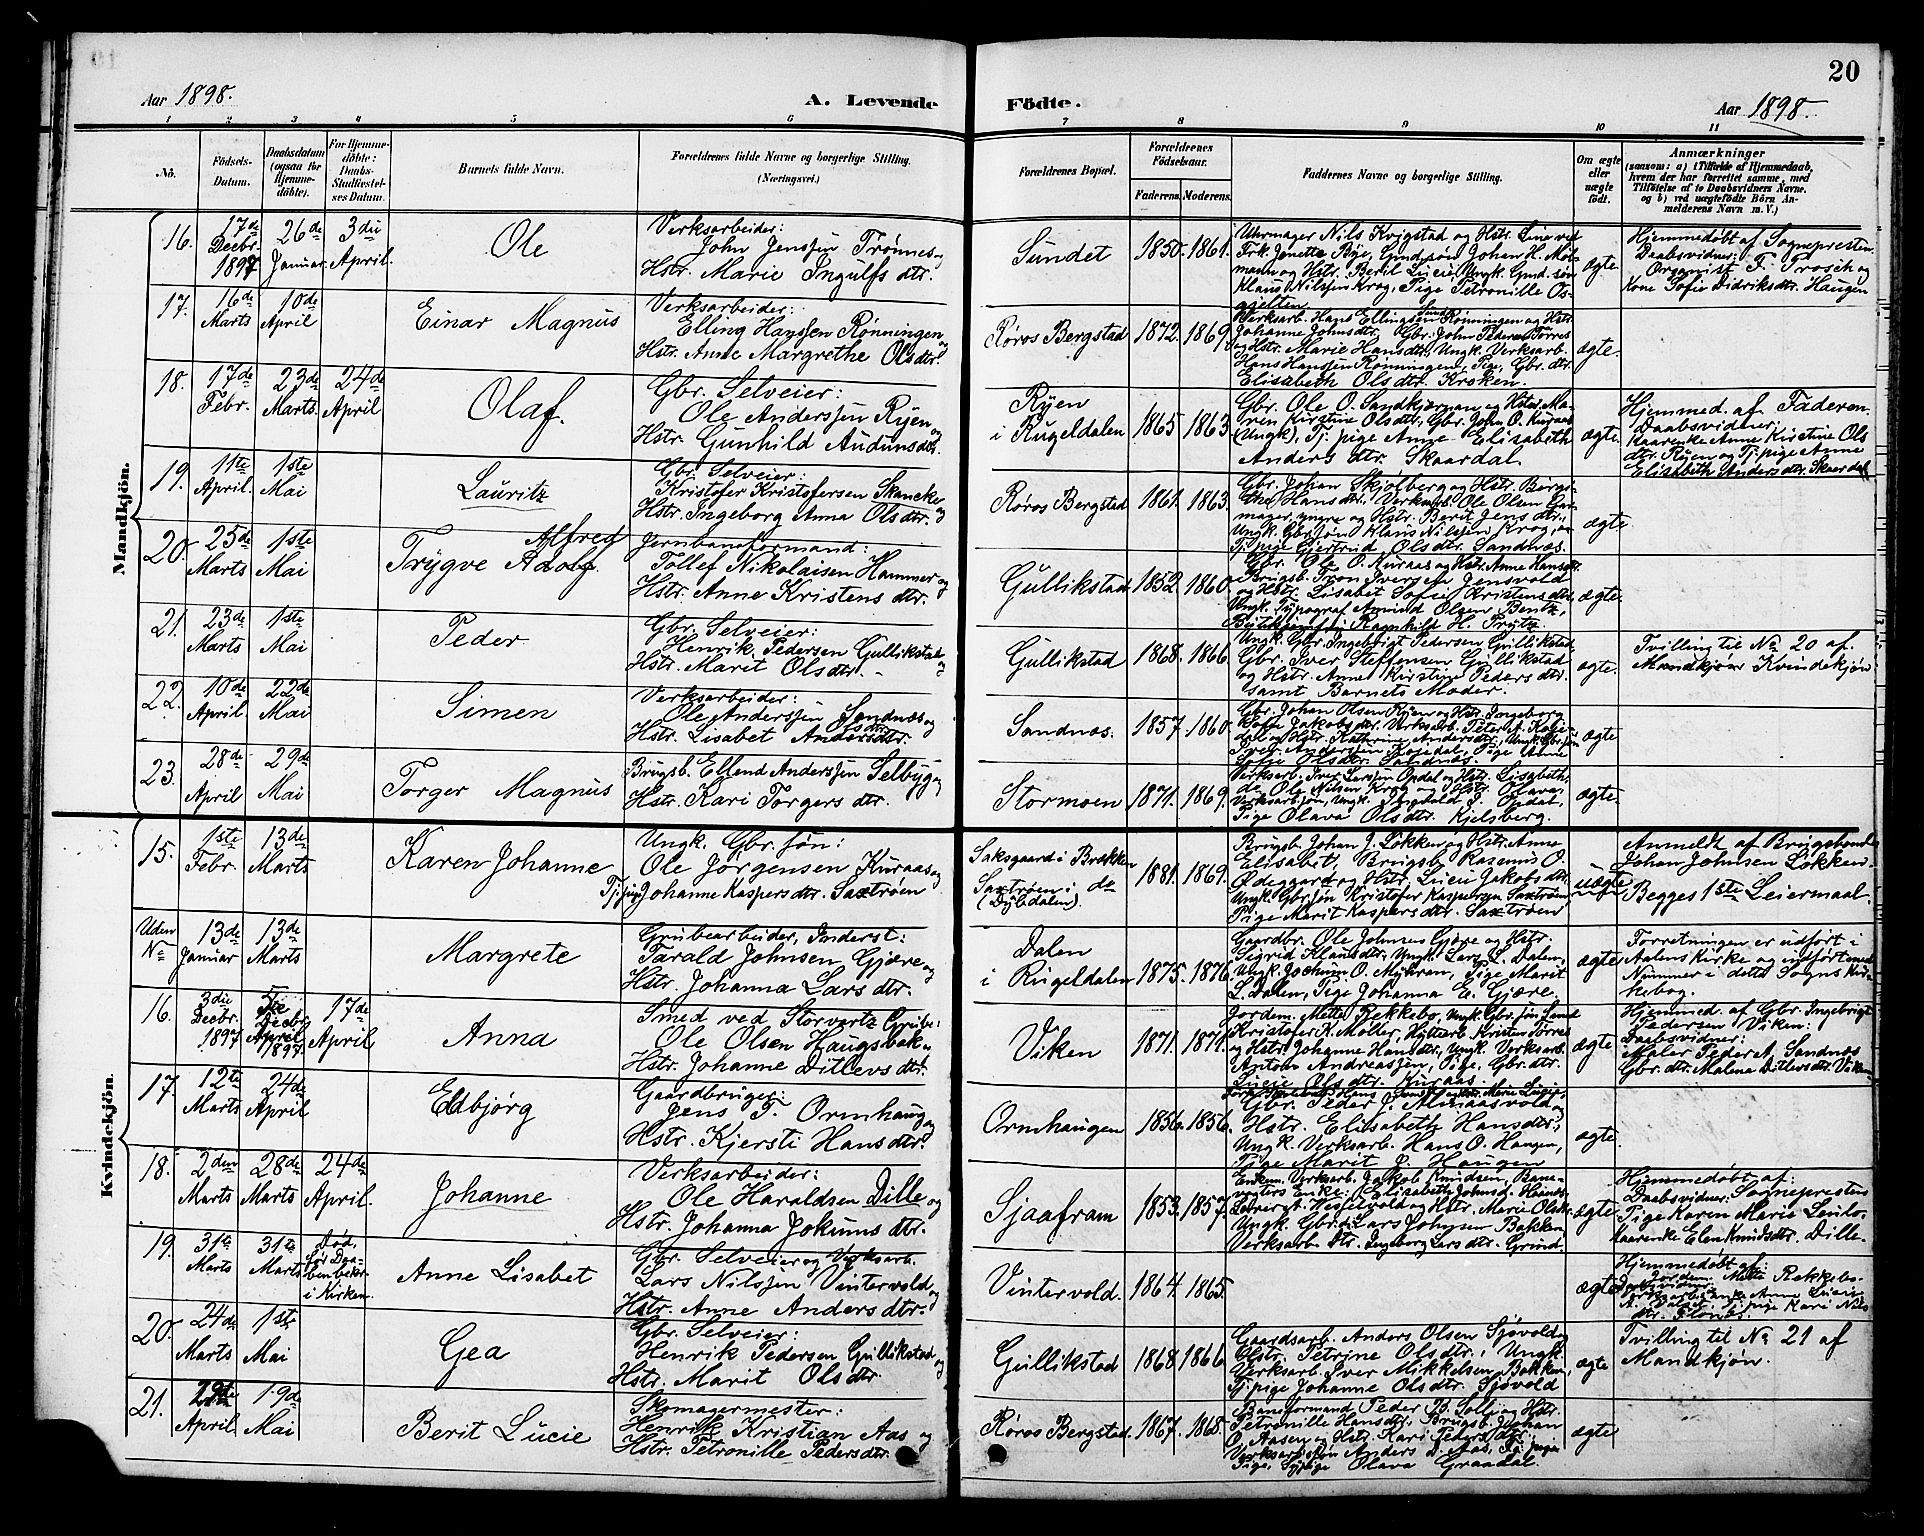 20
Aar 1898.
A. Levende
Födte.
Aar 1898.
1 2 3 4 5 6 7 8 9 10 11
No.
Födsels-
Datum.
Daabsdatum
(ogsaa for
Hjemme-
döbte).
For Hjemme-
döbte:
Daabs-
Stadfæstel-
ses Datum.
Barnets fulde Navn.
Forældrenes fulde Navne og borgerlige Stilling.
(Næringsvei.)
Forældrenes Bopæl.
Forældrenes
Födselsaar.
Faderens.
Moderens.
Faddernes Navne og borgerlige Stilling.
Om ægte
eller
uægte
födt.
Anmærkninger
(saasom: a) i Tilfælde af Hjemmedaab,
hvem der har forrettet samme, med
Tilföielse af to Daabsvidners Navne.
og b) ved uægtefödte Börn An-
melderens Navn m. V.)
Mandkjön.
16.
17de
Decbr.
1897
26de
Januar
3die
April.
Ole
Verksarbeider:
John Jenssen Trønnes og
Hstr. Marie Ingulfsdtr.
Sundet
1850. 1861.
Uhrmager Nils Kvigstad og Hstr. Line ved
mann og Hstr. Beril Lucie, Ungk. Gmd. søn
Klaus Nilssen Krog, Pige Petronille Os-
gjelten
ægte.
Hjemmedøbt af Sognepresten
Daabsvidner:
Organist F. Trosch og
Kone Sofie Didriksdtr. Haugen
17.
16de
Marts
10de
April
Einar Magnus
Verksarbeider:
Elling Hanssen Rønningen og
Hstr. Anne Margrethe Olsdtr.
Røros Bergstad
1872. 1869.
Verksarb. Hans Ellingsen Rønningen og Hstr.
Johanne Johnsdtr. Gbr. John Pedersen Torres
og Hstr. Marie Hansdtr., Ungk. Verksarb.
Hans Hanssen Rønningen, Pige, Gbr. dtr.
Elisabeth Olsdtr. Kroken.
ægte.
18.
17de
Febr.
23de
Marts.
24de
April
Olaf.
Gbr. Selveier:
Ole Anderssen Ryen og
Hstr. Gunhild Audunsdtr.
Ryen
i Rugeldalen
1865 1863
Gbr. Ole O. Sandkjærnan og Hstr. Ma-
ren Kirstine Olsdtr., Gbr. John O. Kuraas
(Ungk), Tj. pige Anne Elisabeth
Andersdtr. Skaardal
ægte.
Hjemmed. af Faderen.
Daabsvidner:
Kaarenke Anne Kirstine Ols
dtr. Ryen og Tj. pige Anne
Elisabeth Andersdtr. Skaardal
19.
11te
April.
1ste
Mai
Lauritz
Gbr. Selveier:
Kristofer Kristofersen Skancke og
Hstr. Ingeborg Anna Olsdtr.
Røros Bergstad
1861. 1863.
Gbr. Johan Skjølberg og Hstr. Bergi-
the Hansdtr., Verksarb. Ole Olsen
mager, yngre og Hstr. Berit Jensdtr.,
Ungk. Gbr. søn Klaus Nilssen Krog, og
Tj. pige Gjertrud Olsdtr. Sandnæs.
ægte.
20.
25de
Marts
1ste
Mai
Alfred
Trygve Adolf.
Jernbaneformand:
Tollef Nikolaisen Hammer og
Hstr. Anne Kristensdtr.
Gullikstad
1852. 1860.
Gbr. Ole O. Kuraas og Hstr. Anne Hansdtr.
Brugsb. Tron Iversen Jensvold
og Hstr. Lisabet Sofie Kristensdtr.
Ungk. Typograf Amund Olsen Bentz,
Ragnhild H. Prytz.
ægte.
21.
23de
Marts
1ste
Mai
Peder
Gbr. Selveier:
Henrik Pedersen Gullikstad og
Hstr. Marit Olsdtr.
Gullikstad
1868. 1866.
Ungk. Gbr. Ingebrigt Pedersen Gullikstad,
Gbr. Iver Steffensen Gullikstad
og Hstr. Anne Kirstine Pedersdtr.
samt Barnets Moder.
ægte.
Tvilling til No 20 af
Mandkjøn Kvindekjøn
22.
10de
April.
22de
Mai
Simen
Verksarbeider:
Ole Anderssen Sandnæs og
Olsdtr.
Hstr. Lisabet Andersdtr.
Sandnæs.
1857. 1860.
Gbr. Johan Olsen Ryen og Hstr. Ingeborg
Sofie Jakobsdtr. Verksarb. Peter A. Koje-
dal og Hstr. Kathrine Andersdtr., Ungk. Gbr. søn
Iver Anderssen Kojedal, Pige Anne
Sofie Olsdtr. Sandnæs.
ægte
23.
28de
April
29de
Mai
Torger Magnus
Brugsb. Ellend Anderssen Selbyg og
Hstr. Kari Torgersdtr.
Stormoen
1871. 1869.
Verksarb. Iver Larssen Opdal og Hstr. Lisabeth,
do Ole Nilsen Krog og Hstr. Olava,
Verksarb. søn, Ungk. Ingvald I. Opdal,
Pige Olava Olsdtr. Kjelsberg.
ægte.
Kvindekjön.
15.
1ste
Febr.
13de
Marts
Karen Johanne
Ungk. Gbr. søn:
Ole Jørgensen Kuraas og
Tj. pige Johanne Kaspersdtr. Saxtrøen
Saksgaard i Brækken
Saxtrøen i do
(Dybdalen).
1881. 1869.
Brugsb. Johan J. Løkken og Hstr. Anne
Elisabet, Brugsb. Rasmus O.
Ødegaard og Hstr. Lucie Jakobsdtr.
Ungk. Gbr. søn Kristofer Kaspersen Saxtrøen
Pige Marit Kaspersdtr. Saxtrøen
uægte
Anmeldt af Brugsbonde
Johan Johnsen Løkken.
Begges 1ste Leiermaal.
Uden
No
13de
Januar
13de
Marts
Margrete
Grubearbeider, Inderst:
Tarald Johnsen Gjøre og
Hstr. Johanna Larsdtr.
Dalen
i Rugeldalen
1875. 1876.
Gaardbr. Ole Johnsen Gjøre og Hstr.
Sigrid Klausdtr., Ungk. Lars L. Dalen,
Ungk. Jochum O. Myhren, Pige Marit
L. Dalen, Pige Johanna E. Gjøre.
ægte
Forretningen er udført i
Aalens Kirke og indført med
Nummer i dette Sogns Kir-
kebog.
16.
3die
Decbr.
1897
5te
Decbr.
April
1897.
17de
April
Anna
Smed ved Storvartz Grube:
Ole Olsen Haugsbak og
Hstr. Johanne Ditlevsdtr.
Viken
1871. 1871.
Jordem. Mette Rekkebo, Ungk. Gbr. søn Smed
Kristofer K. Møller, Hytterb. Kristen Torres
og Hstr. Johanne Hansdtr., Ungk. Verksarb.
Anton Andreassen, Pige, Gbr. dtr.
Lucie Olsdtr. Kuraas.
ægte
Hjemmed. af Gbr. Ingebrigt
Pedersen Viken:
Daabsvidner:
Maler Peder A. Sandnæs
Gbr. dtr. Malena Ditlevsdtr. Viken
17.
12te
Marts
24de
April
Eldbjørg
Gaardbruger:
Jens T. Ormhaug og
Hstr. Kjersti Hansdtr.
Ormhaugen
1856. 1856.
Gbr. Peder J. Minaasvold og
Hstr. Elisabeth Hansdtr.,
Ungk. Verksarb. Hans O. Haugen,
Pige Marit J. Haugen
ægte.
18.
2den
Marts
28de
Marts
24de
April.
Johanne
Verksarbeider:
Ole Haraldsen Dille og
Hstr. Johanna Jokumsdtr.
Sjaafram
1853. 1857.
Enkem. Verksarb. Jakob Knudsen, Bane-
vogters Enke Elisabeth Johnsd.
Vesselvold og Hstr. Marie Olsdtr.
Ungk. Gbr. søn Lars Johnsen Bakken
Verksarb. dtr. Ingeborg Larsdtr. Grind.
ægte
Hjemmedøbt af:
Daabsvidner: Sognepresten
Pige Karen Marie
Kaarenke Elen Knudsdtr. Dille.
19.
31te
Marts
31te
Marts
Død,
før Daa-
ben bekr.
i Kirken.
Anne Lisabet
Gbr. Selveier og Verksarb.
Lars Nilssen Vintervold og
Hstr. Anne Andersdtr.
Vintervold.
1864. 1865.
ægte
Hjemmedøbt af:
Jordem. Mette Rekkebo.
Daabsvidner:
Tj. pige Kari Nils
dtr.
20.
24de
Marts
1ste
Mai
Gea
Gbr. Selveier:
Henrik Pedersen Gullikstad og
Hstr. Marit Olsdtr.
Gullikstad
1868. 1866.
Gaardsarb. Anders Olsen Sjøvold og
Hstr. Petrine Olsdtr., Ungk.
Verksarb. Iver Mikkelsen Bakken,
Tj. pige Johanne Olsdtr. Sjøvold
ægte
Tvilling til No 21 af
Mandkjøn.
21.
April.
19de
Mai
Berit Lucie
Skomagermester:
Henrik Kristian Aas og
Hstr. Petronille Pedersdtr.
Røros Bergstad
1867. 1868.
Baneformand Peder B. Solli og Hstr.
Petronille Hansdtr., Brugsb. Johan
O. Aasen og Hstr. Kari Pedersdtr.,
Verksarb. søn Anders A. Aas,
Pige, Sypige Olava Graadal.
ægte